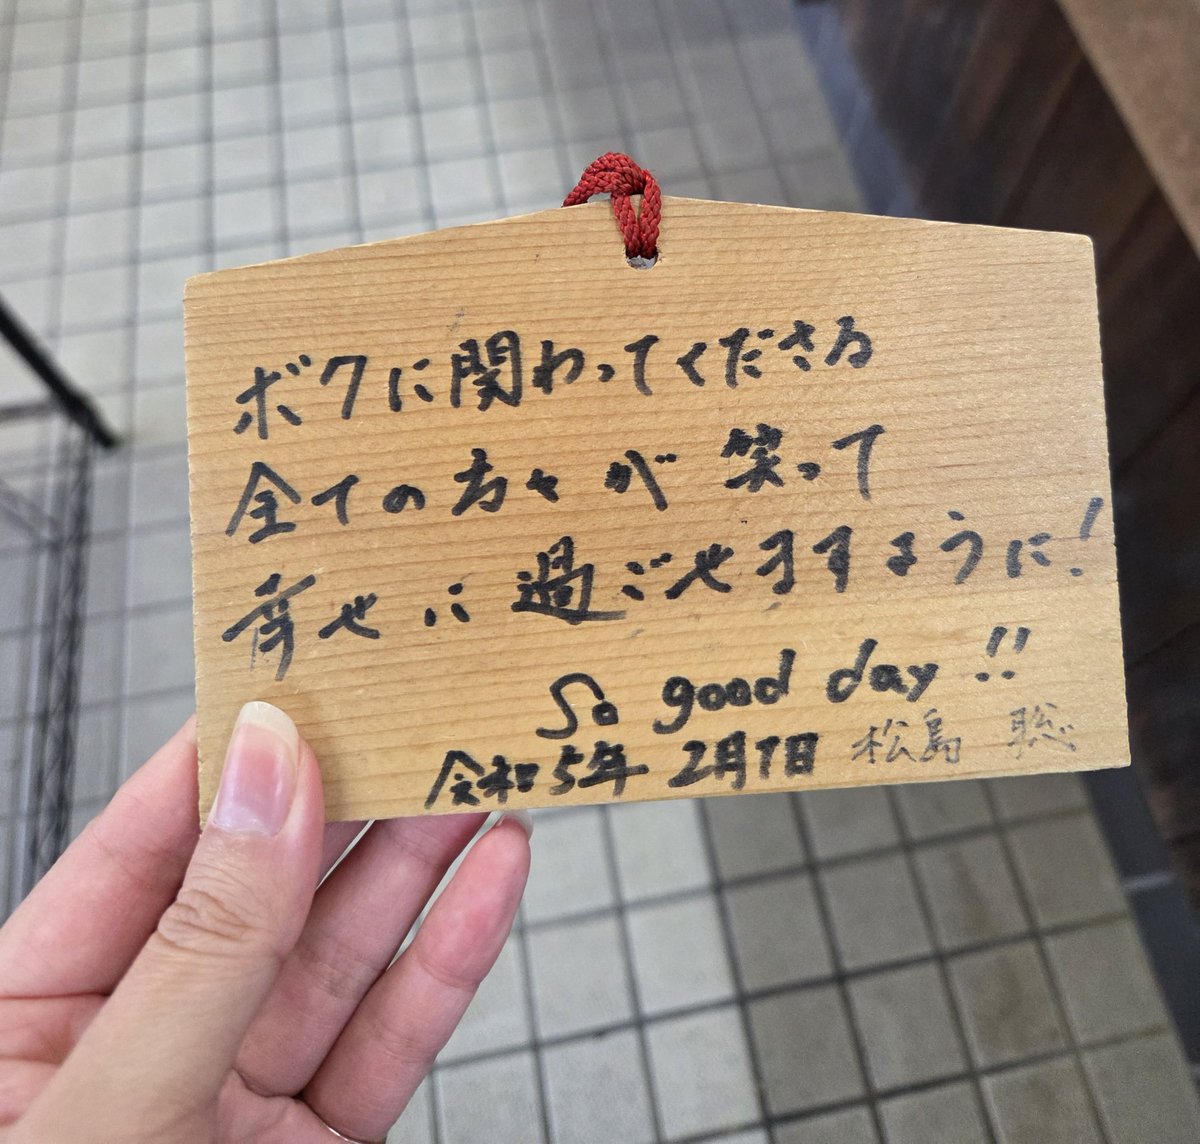 ボクに関わってくださる
全ての方々が笑って
幸せに過ごせますように!
So good day!!
令和5年2月7日 松島 聡